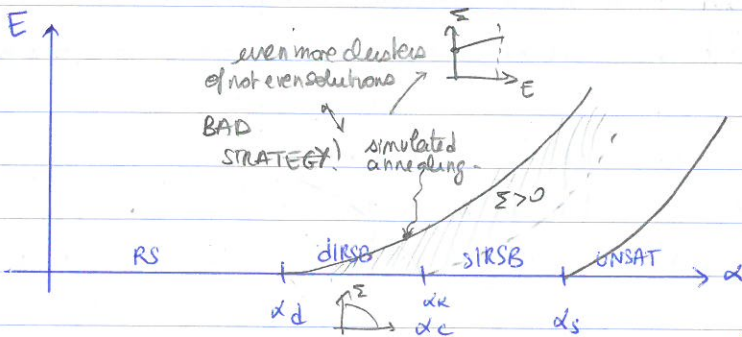 E
Σ
even more clusters
of not even solutions
E
BAD
STRATEGY!
simulated
annealing
Σ>0
RS
d1RSB
s1RSB
UNSAT
α
αd
Σ
αK
αc
αs